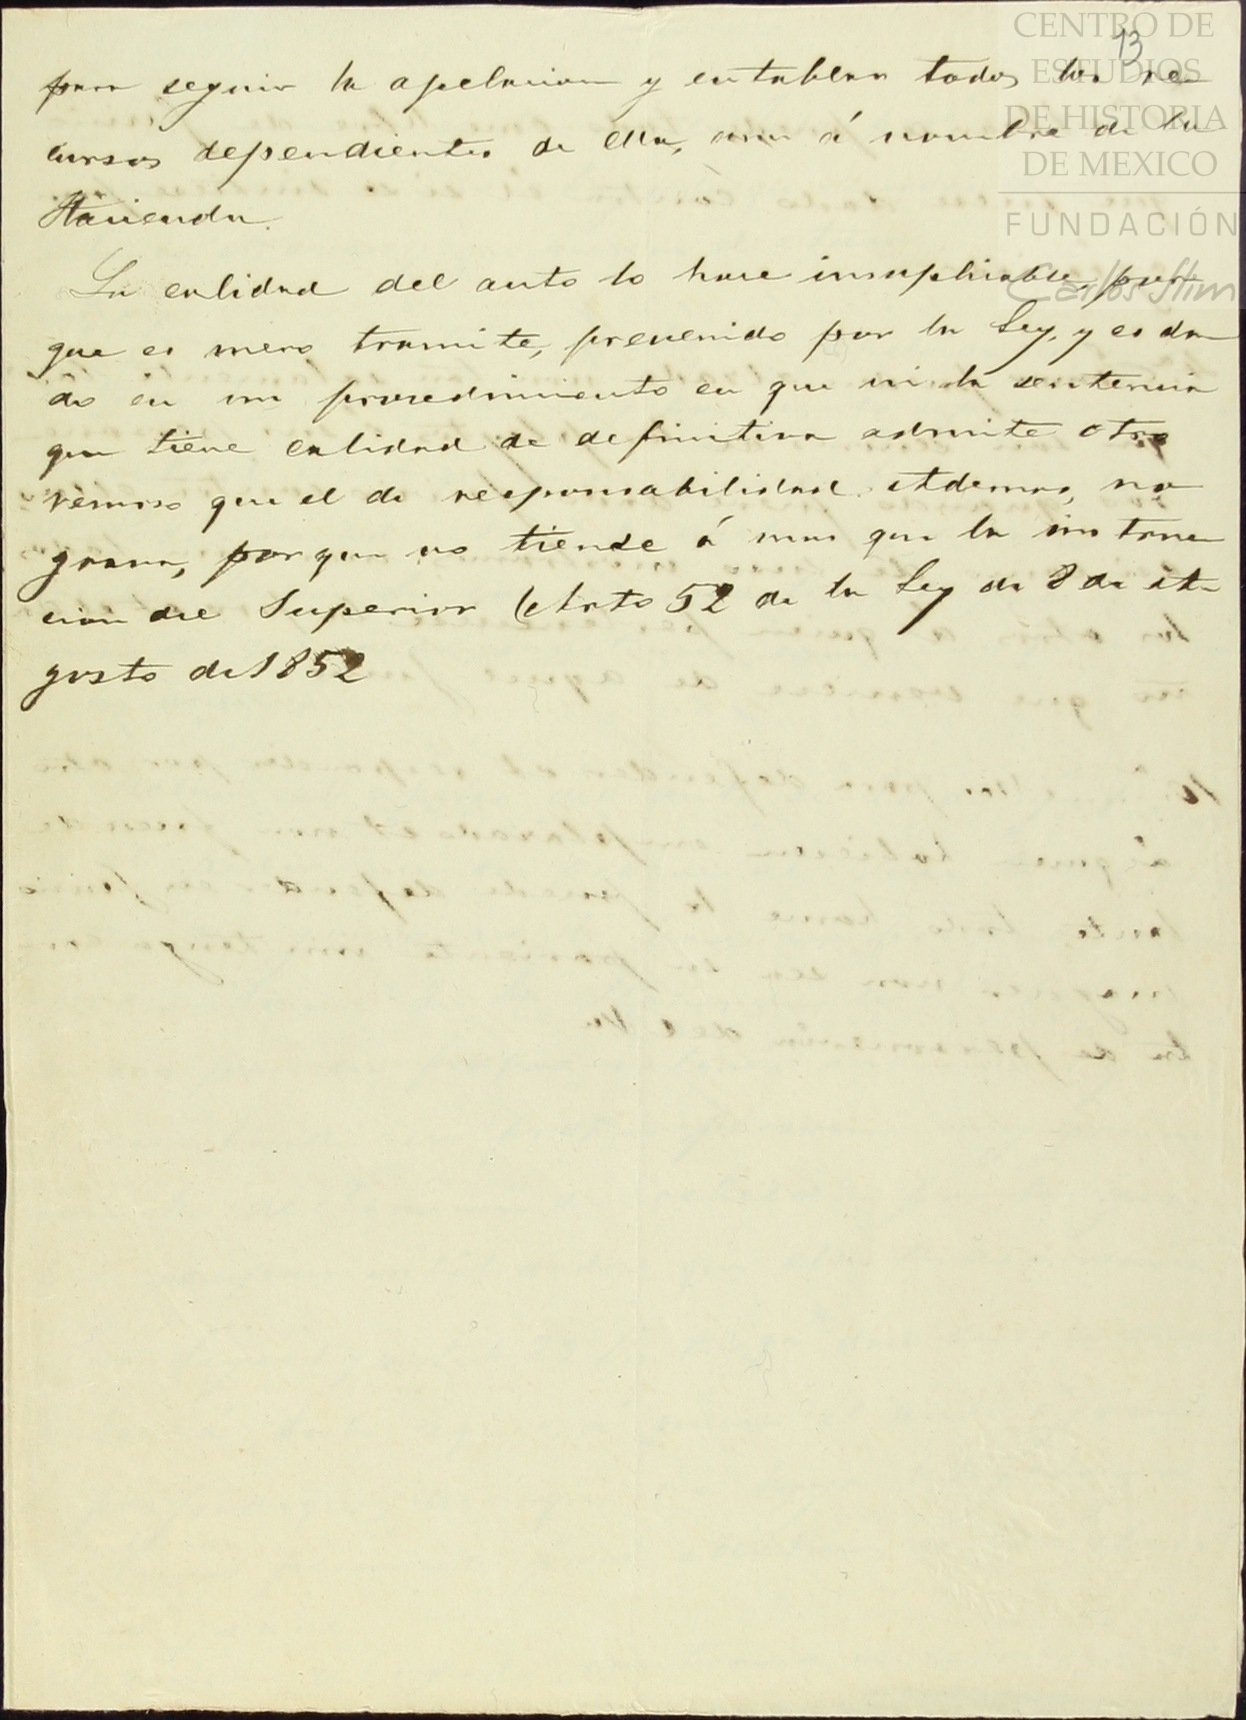 CENTRO DE
ESTUDIOS
DE HISTORIA
DE MEXICO
FUNDACIÓN
Carlos Slim
13
para seguir la apelacion y entablar todos los re-
cursos dependientes de ella, aun á nombre de la
Hacienda.
La calidad del auto lo hace insuplicable, por-
que es mero tramite, prevenido por la Ley, y es da-
do en un procedimiento en que ni la sentencia
que tiene calidad de definitiva admite otro
recurso que el de responsabilidad. Ademas, no
grava, porque no tiende á mas que la instruc-
cion del Superior (Arto 52 de la Ley de 8 de A-
gosto de 1852